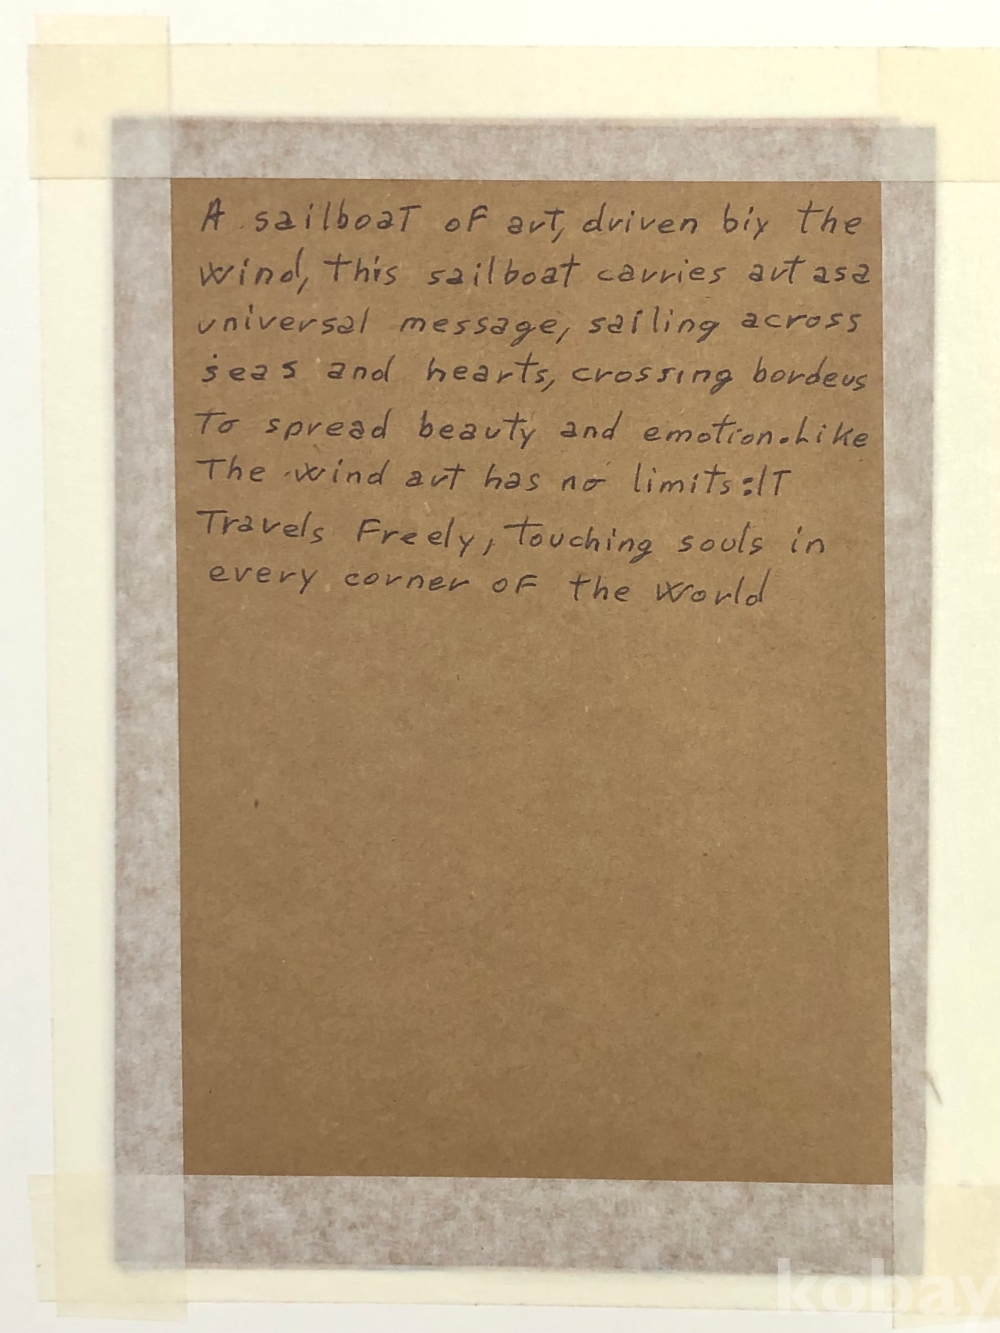 A sailboat of art, driven biy the
wind, this sailboat carries art asa
universal message, sailing across
seas and hearts, crossing borders
To spread beauty and emotion. Like
The wind art has no limits: IT
Travels Freely, Touching souls in
every corner of the world
kobay